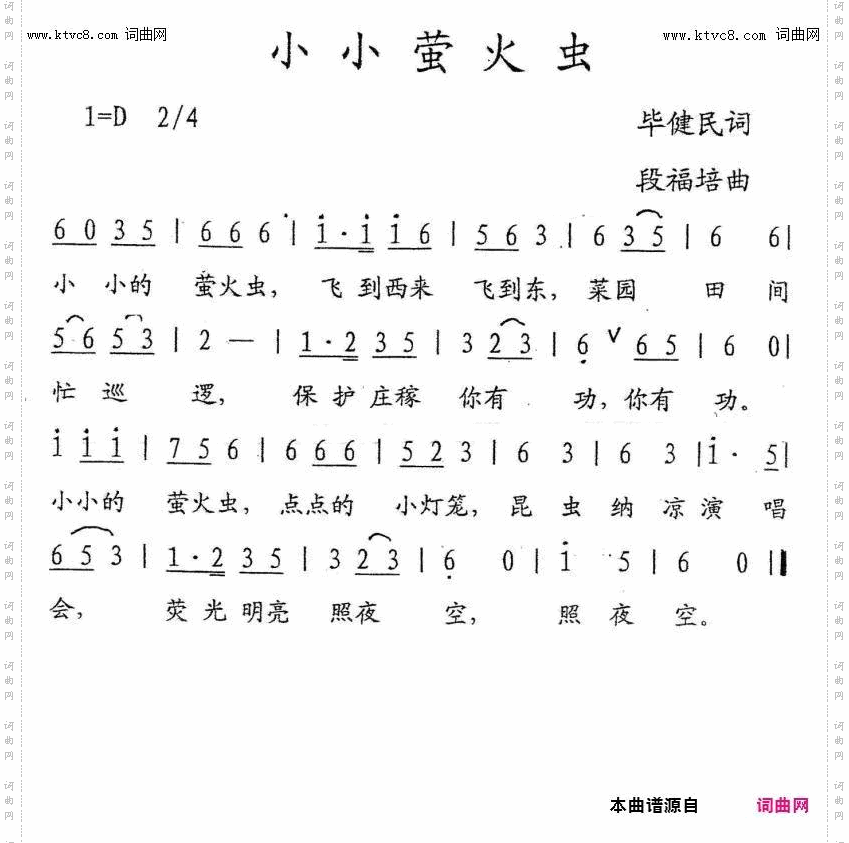 www.ktvc8.com 词曲网
www.ktvc8.com 词曲网
小小萤火虫
1=D 2/4
毕健民词
段福培曲
6 0 3 5 | 6 6 6 | i · i i 6 | 5 6 3 | 6 3 5 | 6 6 |
小 小的 萤火虫， 飞 到西来 飞到东， 菜园 田 间
5 6 5 3 | 2 — | 1 · 2 3 5 | 3 2 3 | 6̣ ∨ 6 5 | 6 0 |
忙 巡 逻， 保 护 庄稼 你有 功，你有 功。
i i i | 7 5 6 | 6 6 6 | 5 2 3 | 6 3 | 6 3 | i · 5 |
小小的 萤火虫， 点点的 小灯笼， 昆 虫 纳 凉演 唱
6 5 3 | 1 · 2 3 5 | 3 2 3 | 6̣ 0 | i 5 | 6 0 ‖
会， 荧 光 明亮 照夜 空， 照 夜 空。
本曲谱源自 词曲网